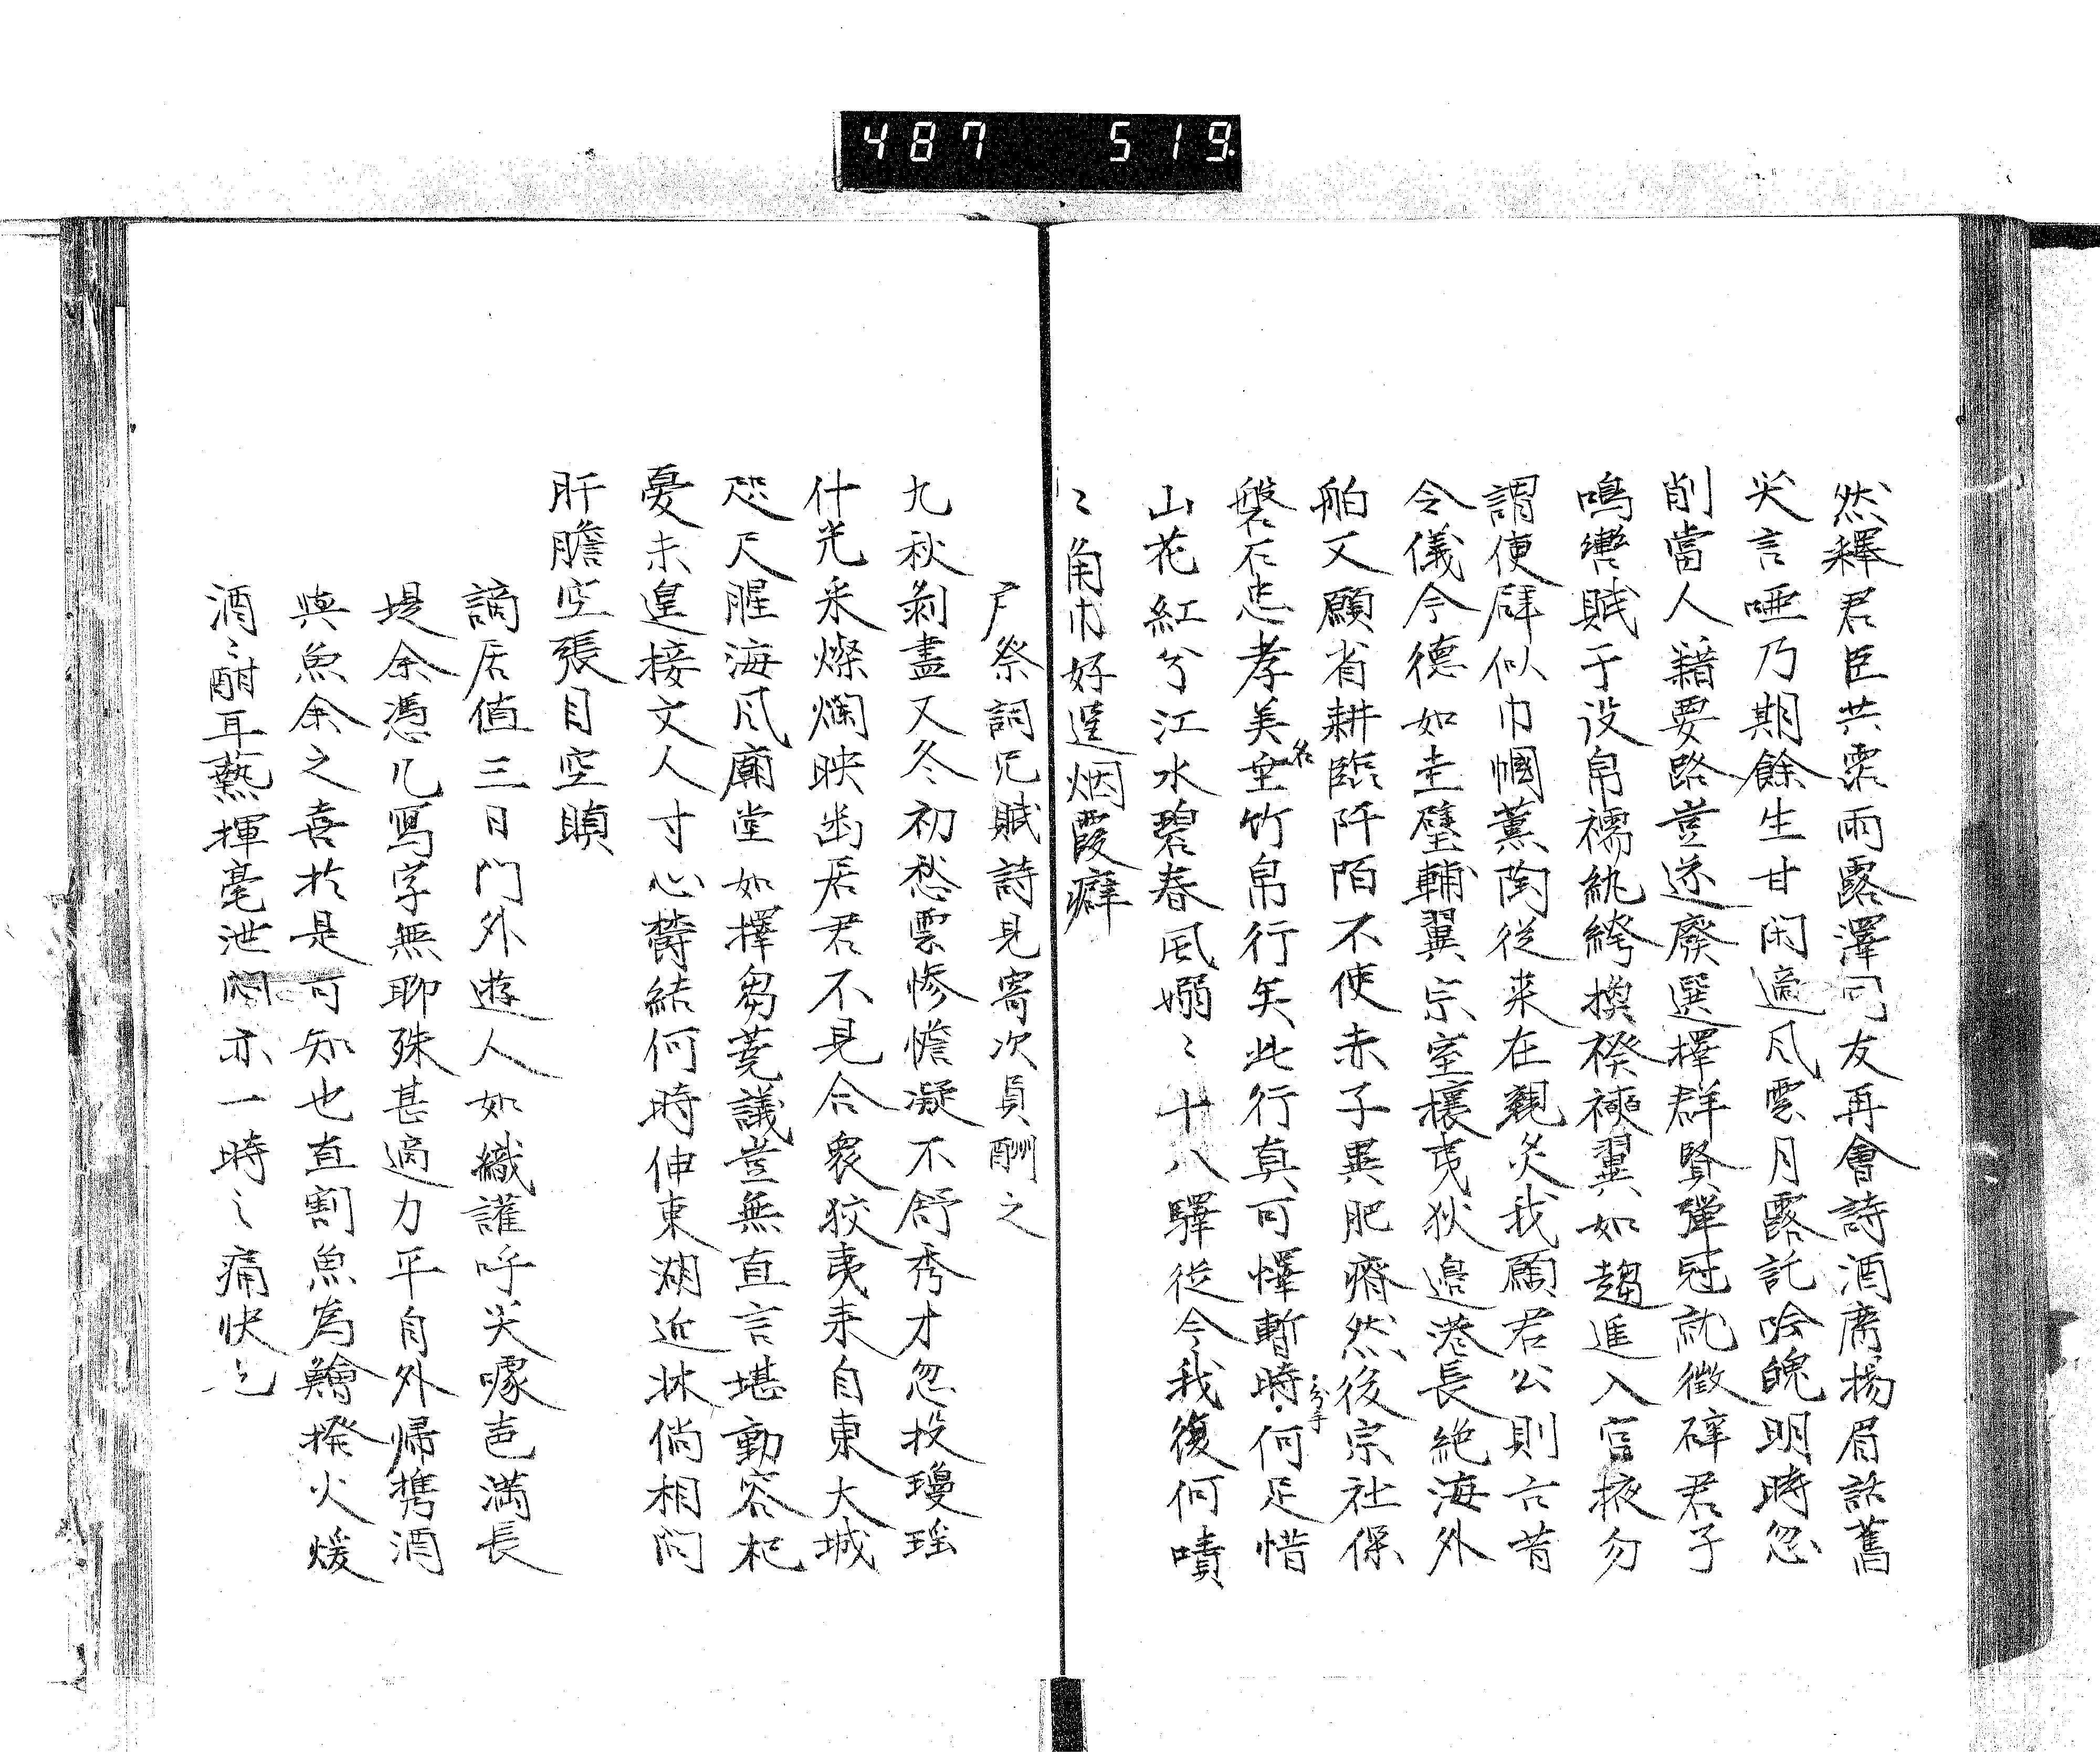 487 519
然釋君臣共霑雨露澤同友再會詩酒席揚眉話舊
笑言啞乃期餘生甘閑適風雲月露託吟魄明時忽
削當人籍要路豈遂廢選擇群賢彈冠就徵辟君子
鳴轡賦于役帛襦紈絝換襏襫翼如趨進入宮掖勿
謂便辟似巾幗薰陶從来在親炙我願君公則古昔
令儀令德如圭璧輔翼宗室攘夷狄邊港長絶海外
舶又願省耕臨阡陌不使赤子異肥瘠然後宗社保
磐石忠孝美名垂竹帛行矣此行真可懌暫時分手何足惜
山花紅兮江水碧春風嫋〻十八驛從今我復何嘖
〻角巾好遂烟霞癖
尸祭詞兄賦詩見寄次員酬之
九秋剝盡又冬初愁雲惨憺凝不舒秀才忽投瓊瑶
什光釆燦爛映幽居君不見合衆狡夷来自東大城
咫尺腥海風廟堂如擇芻蕘議豈無直言堪動容杞
憂未遑接文人寸心欝結何時伸東湖近牀倘相問
肝膽空張目空瞋
謫居値三日門外遊人如織讙呼笑噱声満長
堤余憑几寫字無聊殊甚適力平自外帰携酒
與魚余之喜於是可知也直割魚為鱠撥火煖
酒〻酣耳熱揮毫泄悶亦一時之痛快也